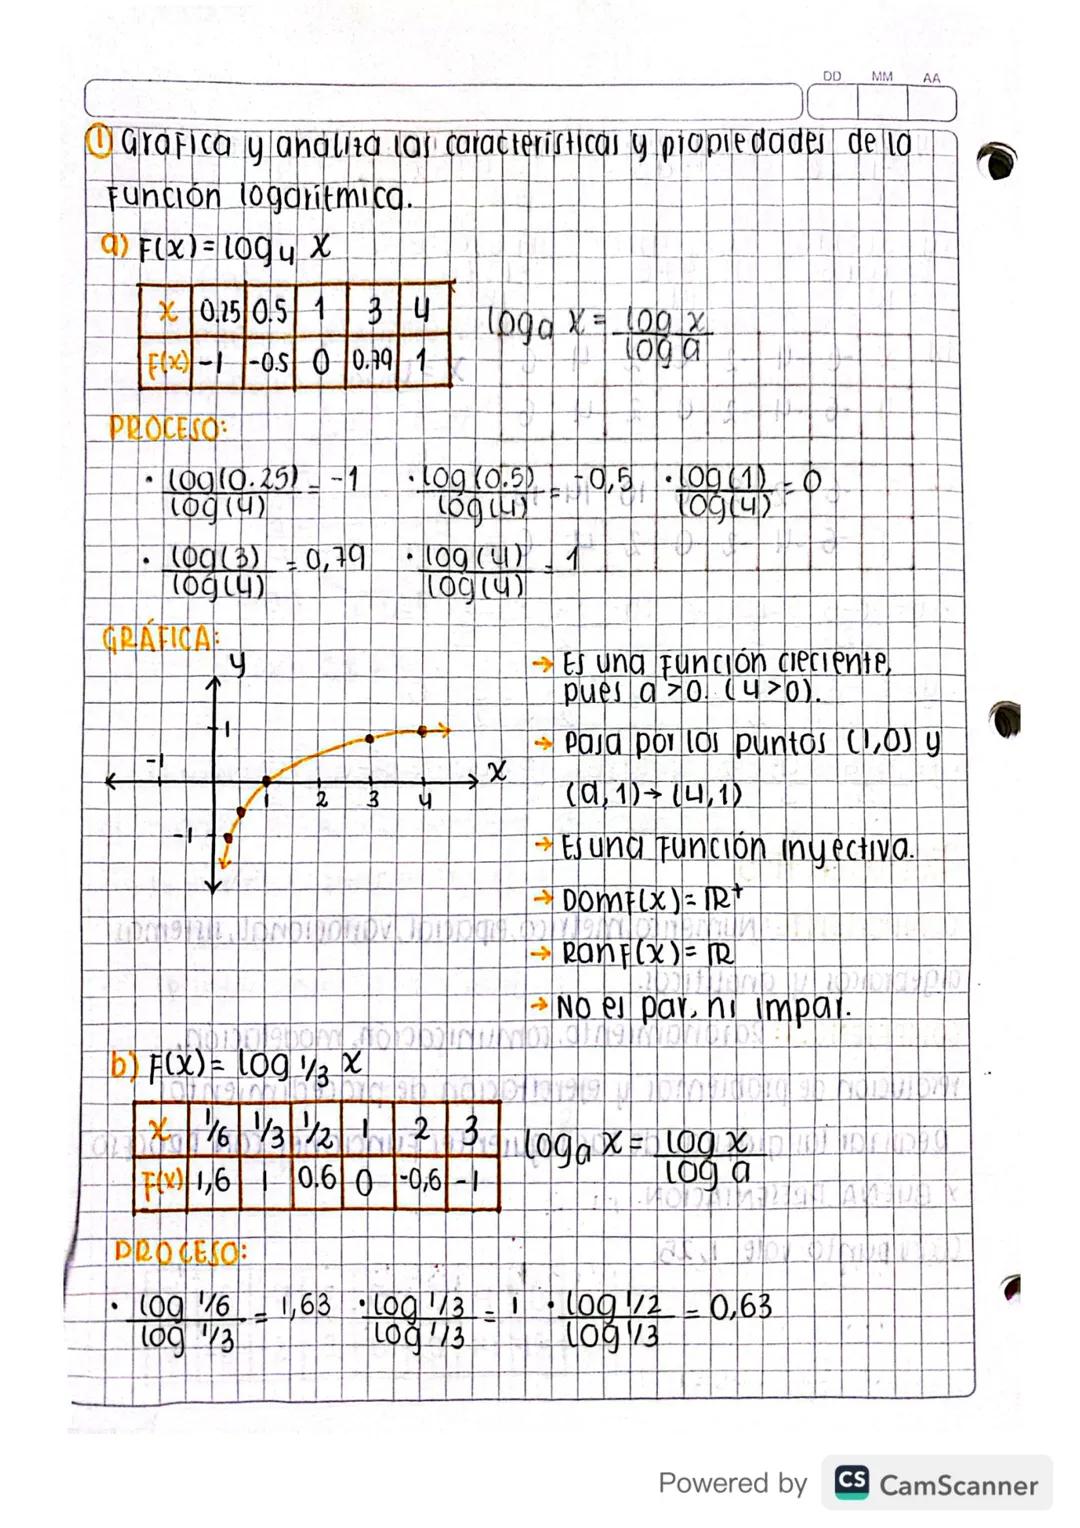 DD MM AA
① Gráfica y analiza las características y propiedades de la
Función logarítmica.
a) F(x) = log₄ x
x 0.25 0.5 1 3 4
F(x) -1 -0.5 0 0.79 1
logₐ x = log x / log a
PROCESO:
· log(0.25) / log(4) = -1 · log(0.5) / log(4) = -0,5 · log(1) / log(4) = 0
· log(3) / log(4) = 0,79 · log(4) / log(4) = 1
GRÁFICA:
y
1
-1
x
1 2 3 4
-1
→ Es una Función creciente,
pues a > 0. (4 > 0).
→ Pasa por los puntos (1,0) y
(a, 1) → (4, 1)
→ Es una Función inyectiva.
→ DomF(x) = ℝ⁺
→ RanF(x) = ℝ
→ No es par, ni impar.
b) F(x) = log 1/3 x
x 1/6 1/3 1/2 1 2 3
F(x) 1,6 1 0.6 0 -0,6 -1
logₐ x = log x / log a
PROCESO:
· log 1/6 / log 1/3 = 1,63 · log 1/3 / log 1/3 = 1 · log 1/2 / log 1/3 = 0,63
Powered by CS CamScanner